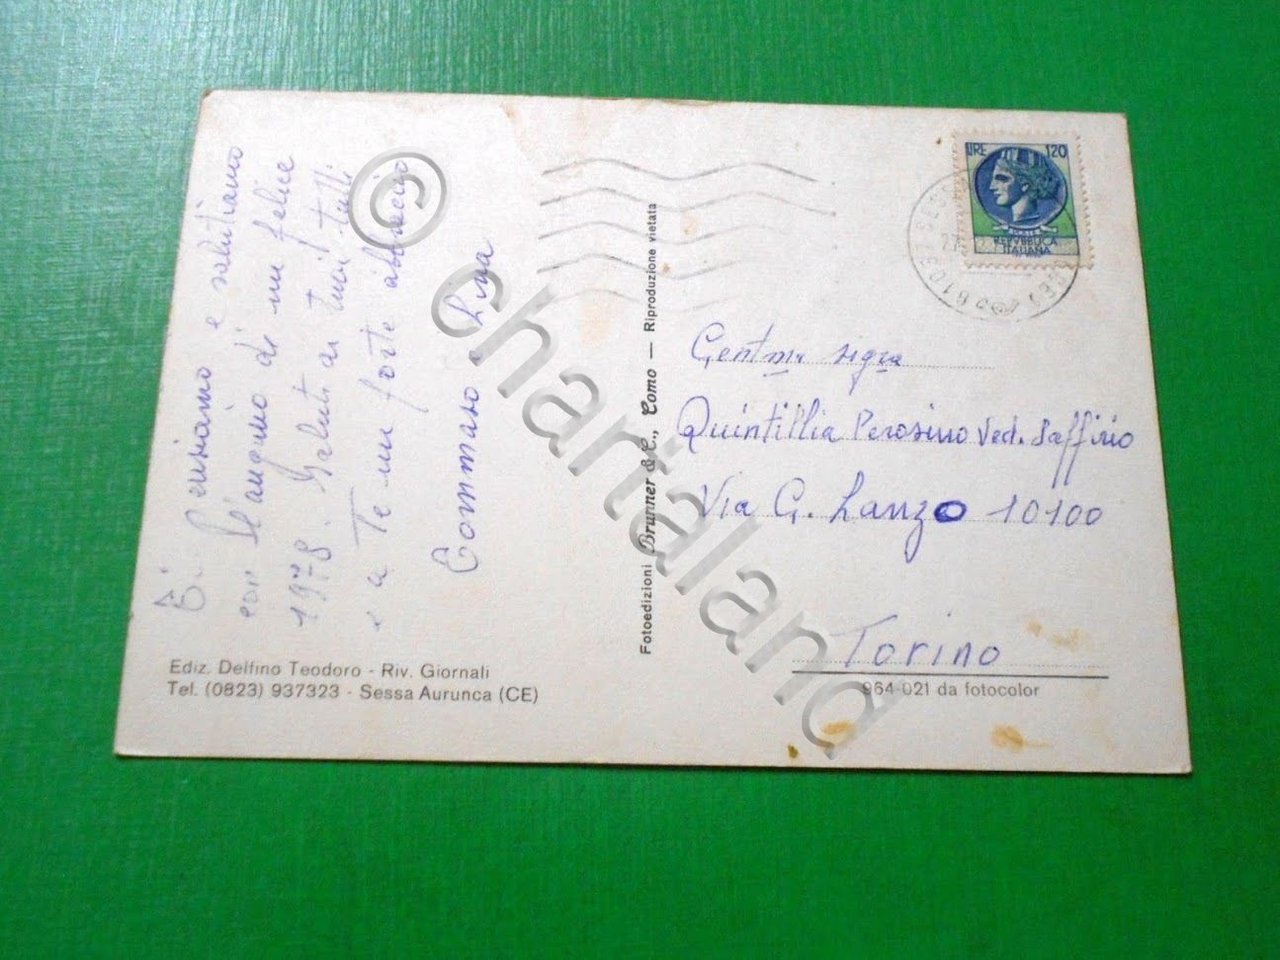 Ti pensiamo e salutiamo
con l'augurio di un felice
1978. Saluti ai tuoi tutti
e a Te un forte abbraccio
Tommaso e Lina
Ediz. Delfino Teodoro - Riv. Giornali
Tel. (0823) 937323 - Sessa Aurunca (CE)
Fotoedizioni Brunner & C., Como — Riproduzione vietata
LIRE 120
REPVBBLICA
ITALIANA
Gentma sigra
Quintillia Perosino Ved. Saffirio
Via G. Lanzo 10100
Torino
964-021 da fotocolor
© chartaland